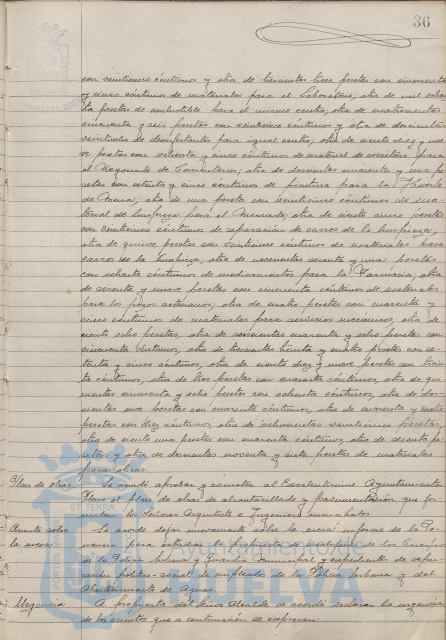 36
con veinticinco céntimos y otra de trescientas trece pesetas con cincuenta
y cinco céntimos de materiales para el Laboratorio; otra de mil ochen
ta pesetas de combustible para el mismo centro; otra de cuatrocientas
cincuenta y seis pesetas con veinticinco céntimos y otra de doscientas
veintiseis de desinfectantes para igual centro; otra de ciento diez y nue
ve pesetas con ochenta y cinco céntimos de material de escritorio para
el Negociado de ; otra de doscientas cincuenta y una pe
setas con setenta y cinco céntimos de pintura para la Tenencia
de ; otra de una peseta con veinticinco céntimos de ma
terial de limpieza para el Mercado; otra de ciento cinco pesetas
con veinticinco céntimos de reparación de carros de la limpieza;
otra de quince pesetas con veinticinco céntimos de materiales para
carros de la limpieza; otra de novecientas sesenta y una pesetas
con ochenta céntimos de medicamentos para la Farmacia; otra
de sesenta y nueve pesetas con cincuenta céntimos de materiales
para los pozos artesianos; otra de cuatro pesetas con cuarenta y
cinco céntimos de materiales para servicios mecánicos, otra de
ciento ocho pesetas, otra de seiscientas cuarenta y ocho pesetas con
cincuenta céntimos, otra de trescientas treinta y cuatro pesetas con se-
tenta y cinco céntimos, otra de ciento diez y nueve pesetas con trein
ta céntimos, otra de tres pesetas con cuarenta céntimos, otra de qui
nientas cincuenta y ocho pesetas con ochenta céntimos, otra de dos-
cientas once pesetas con cuarenta céntimos, otra de cuarenta y cuatro
pesetas con diez céntimos, otra de ochocientas veinticinco pesetas,
otra de ciento una pesetas con cuarenta céntimos, otra de sesenta pe
setas y otra de doscientas noventa y siete pesetas de materiales
para obras.
Plan de obras Se acordó aprobar y someter al Excelentísimo Ayuntamiento
Pleno el plan de obras de alcantarillado y pavimentación que for
mulan los Señores Arquitecto e Ingeniero municipales.
Asuntos sobre Se acordó dejar nuevamente sobre la mesa informe de la Po
la mesa nencia para estudiar la propuesta de
de la Policia Urbana y Guardia Municipal; y expedientes de depu
ración político-social de empleados de la Policia Urbana y del
Abastecimiento de Aguas.
Urgencia A propuesta del Señor Alcalde se acordó declarar la urgencia
de los asuntos que a continuación se expresan:
Ayuntamiento de
HUELVA